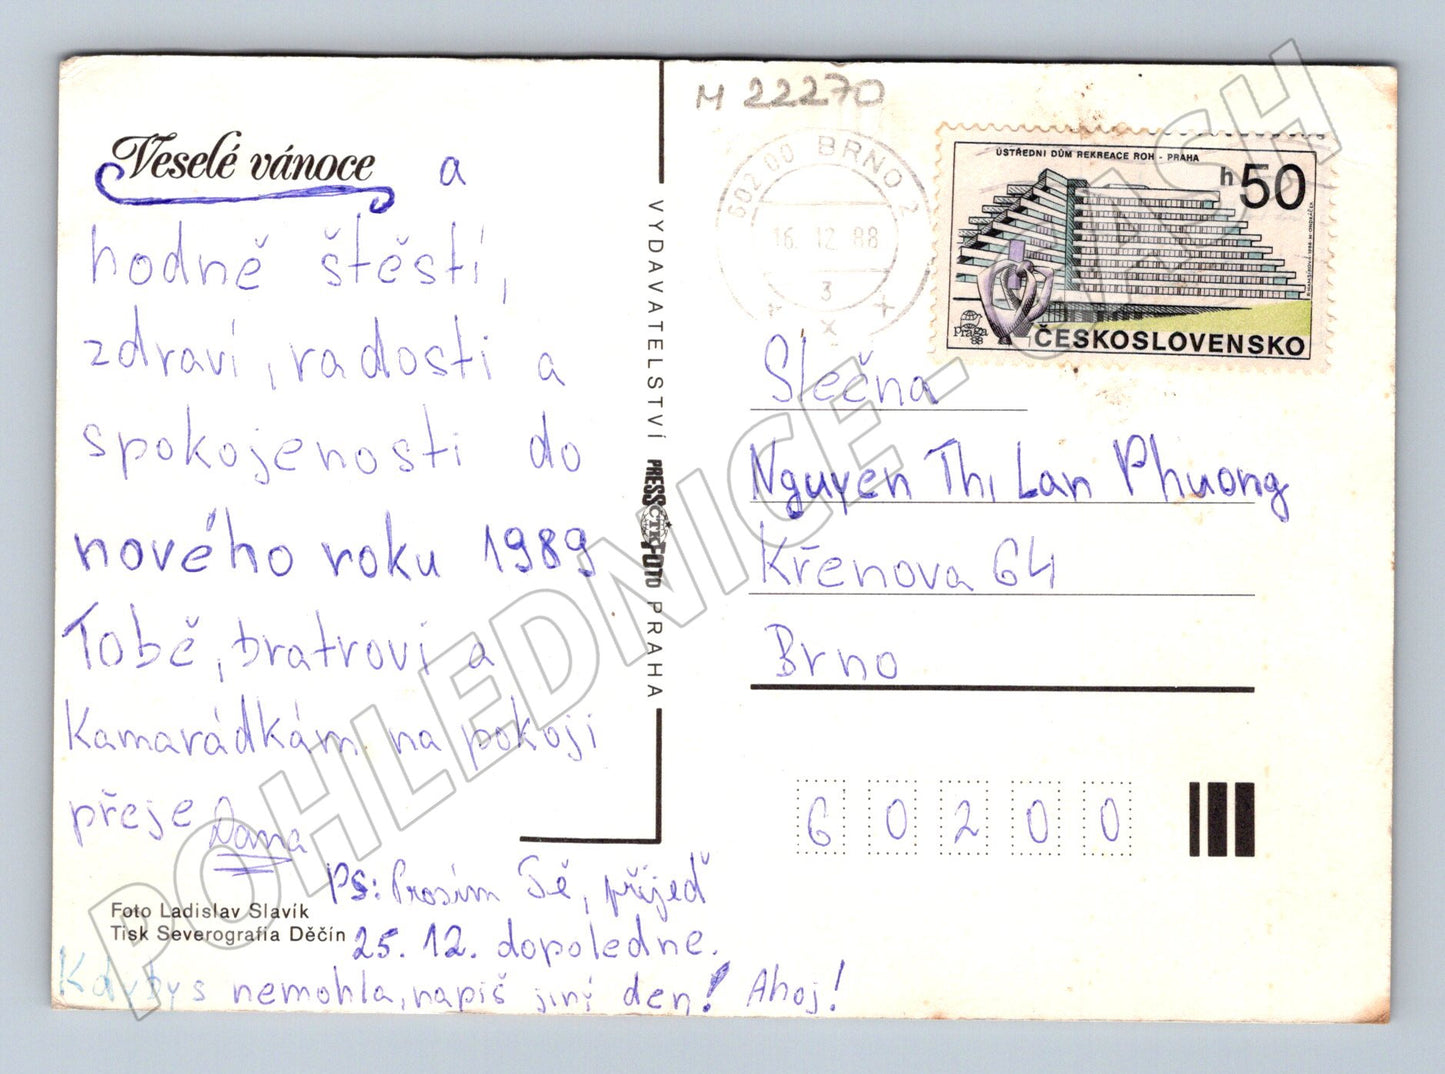 Veselé vánoce a
hodně štěstí,
zdraví, radosti a
spokojenosti do
nového roku 1989
Tobě, bratrovi a
Kamarádkám na pokoji
přeje Dana
PS: Prosím Tě, přijeď
25. 12. dopoledne.
Kdybys nemohla, napiš jiný den! Ahoj!
Foto Ladislav Slavík
Tisk Severografia Děčín
VYDAVATELSTVÍ PRESSFOTO PRAHA
ČTK
M 22270
602 00 BRNO 2
16. 12. 88
3
ÚSTŘEDNÍ DŮM REKREACE ROH - PRAHA
h 50
praga
88
ČESKOSLOVENSKO
Slečna
Nguyen Thi Lan Phuong
Křenova 64
Brno
6 0 2 0 0
POHLEDNICE - CASH